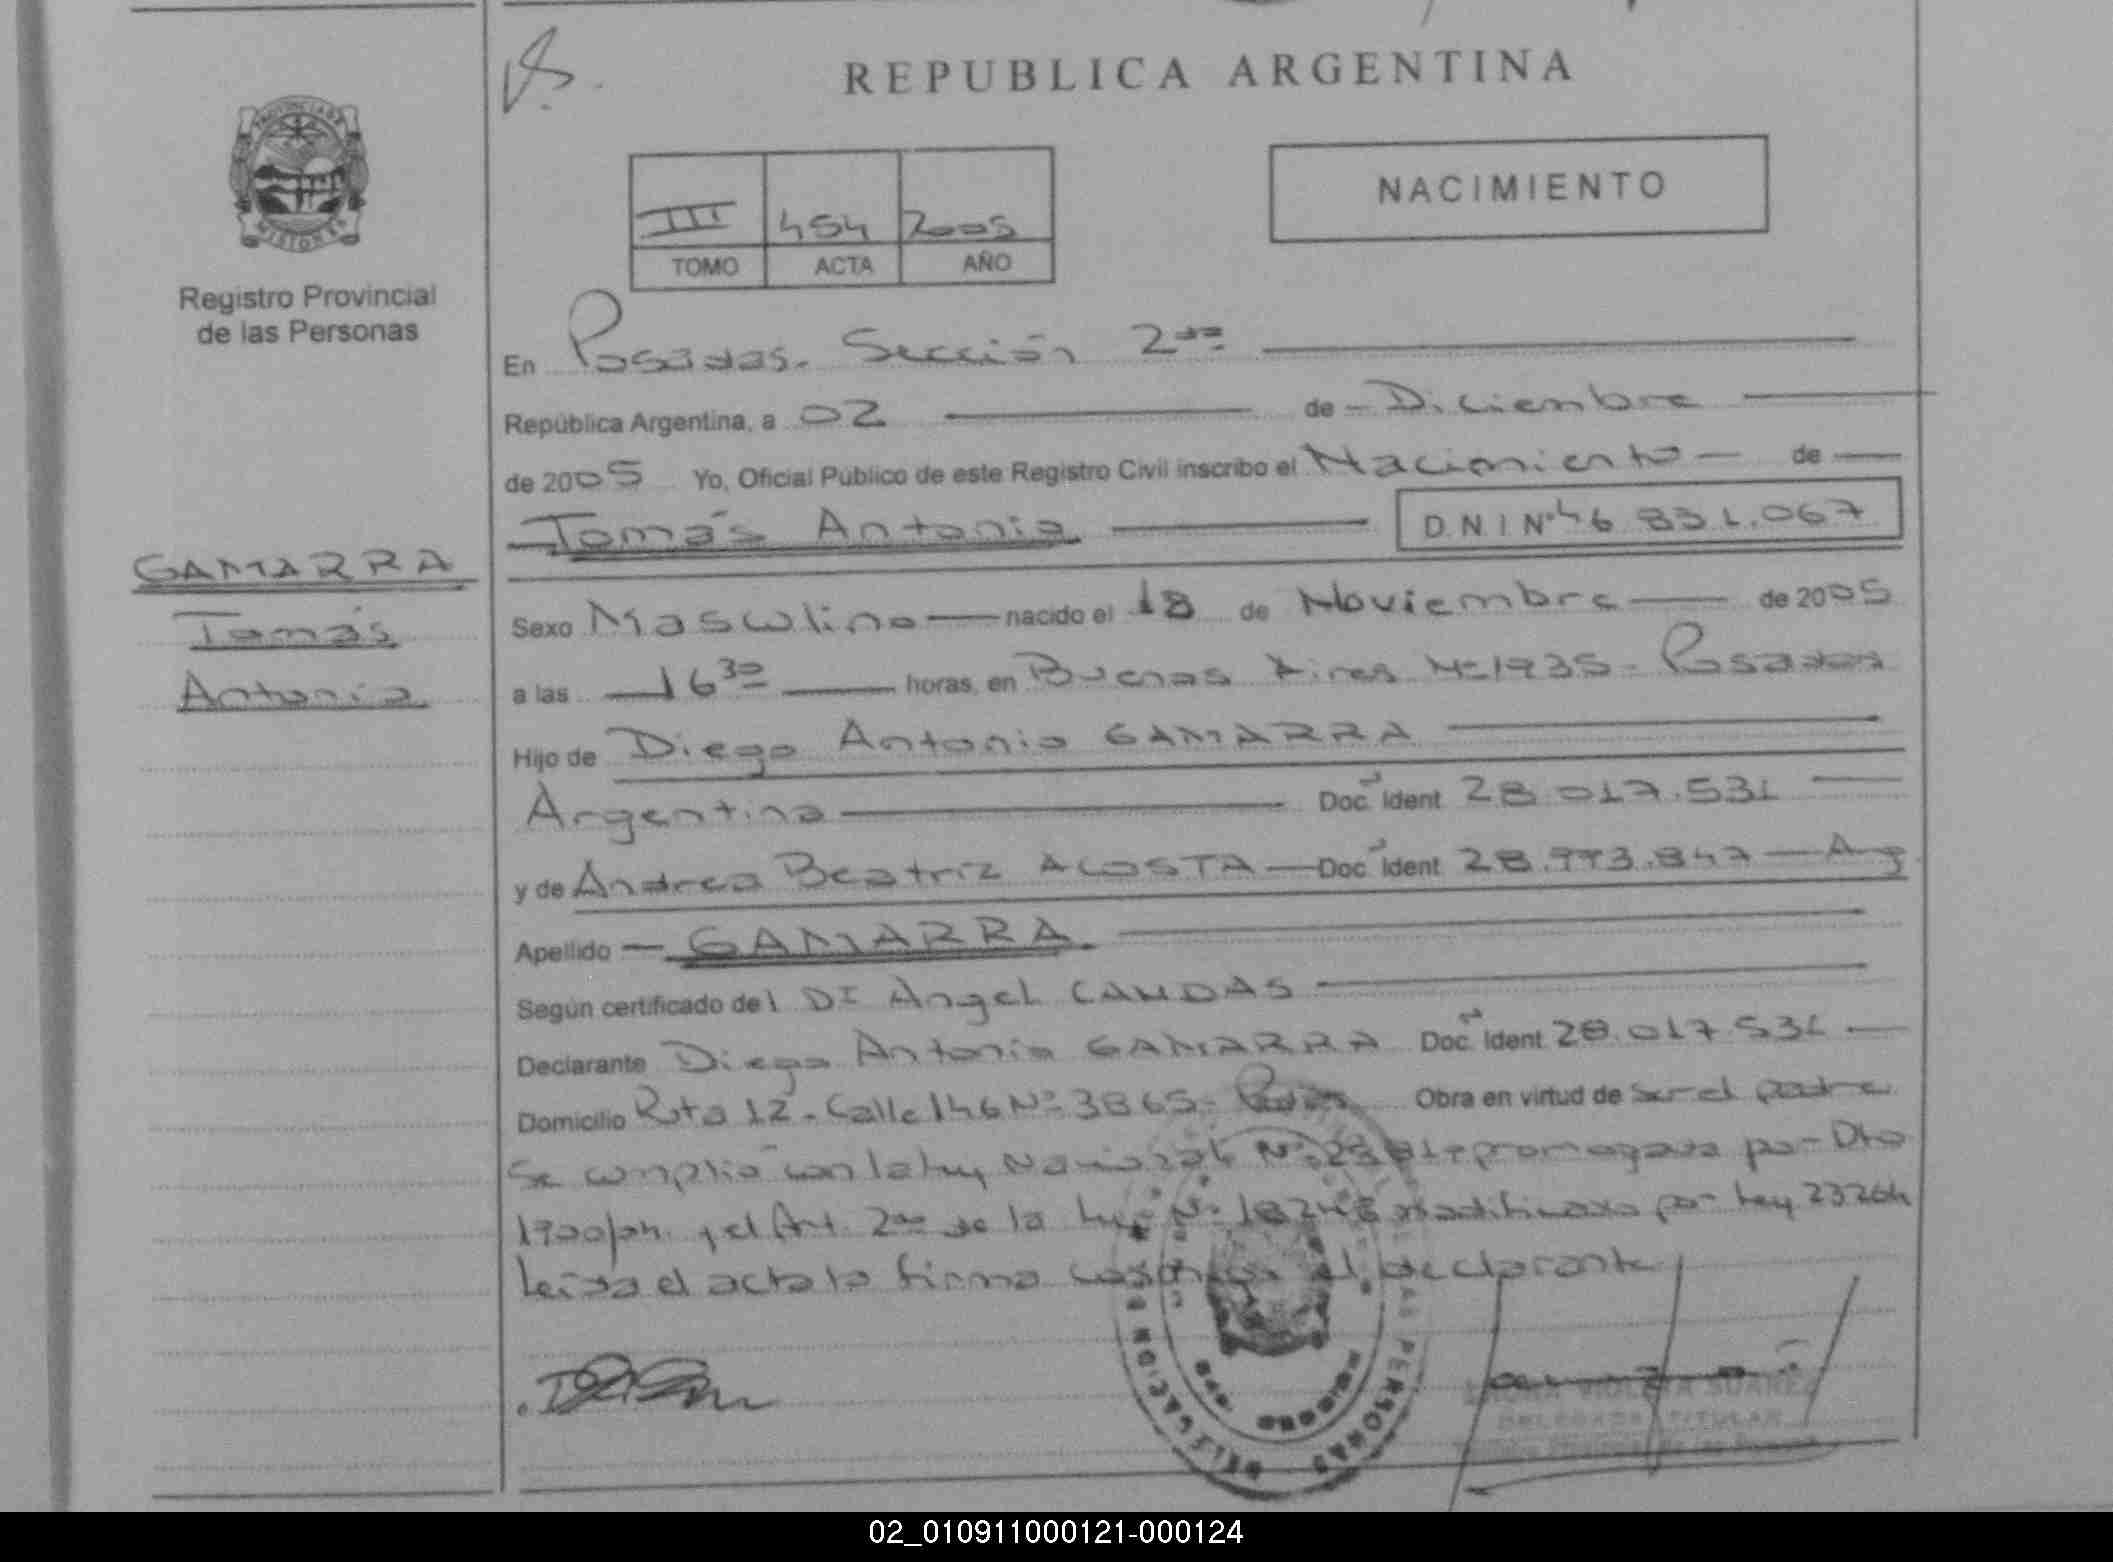 REPUBLICA ARGENTINA
PROVINCIA DE
MISIONES
Registro Provincial
de las Personas
III 454 2005
TOMO ACTA AÑO
NACIMIENTO
En Posadas. Sección 2da
República Argentina, a 02 de Diciembre
de 2005 Yo, Oficial Público de este Registro Civil inscribo el Nacimiento de
Tomás Antonio D.N.I Nº 46 831.067
GAMARRA
Tomás
Antonio
Sexo Masculino nacido el 18 de Noviembre de 2005
a las 16 30 horas, en Buenos Aires Nº 1935 - Posadas
Hijo de Diego Antonio GAMARRA
Argentino Doc. Ident 28.017.531
y de Andrea Beatriz ACOSTA Doc. Ident 28.993.847 Arg
Apellido GAMARRA
Según certificado del Dr Angel CANDAS
Declarante Diego Antonio GAMARRA Doc. Ident 28.017.531
Domicilio Ruta 12 - Calle 146 Nº 3865 - Obra en virtud de Ser el padre
Se cumplió con la ley Nacional Nº promogada por Dto
1900/04 y el Art. 2do de la Ley Nº 18248 modificado por Ley 23264
Leída el acta la firma conmigo el declarante
VIOLETA SUAREZ
DELEGADA TITULAR
DELEGACION
PERSONAS
02_010911000121-000124